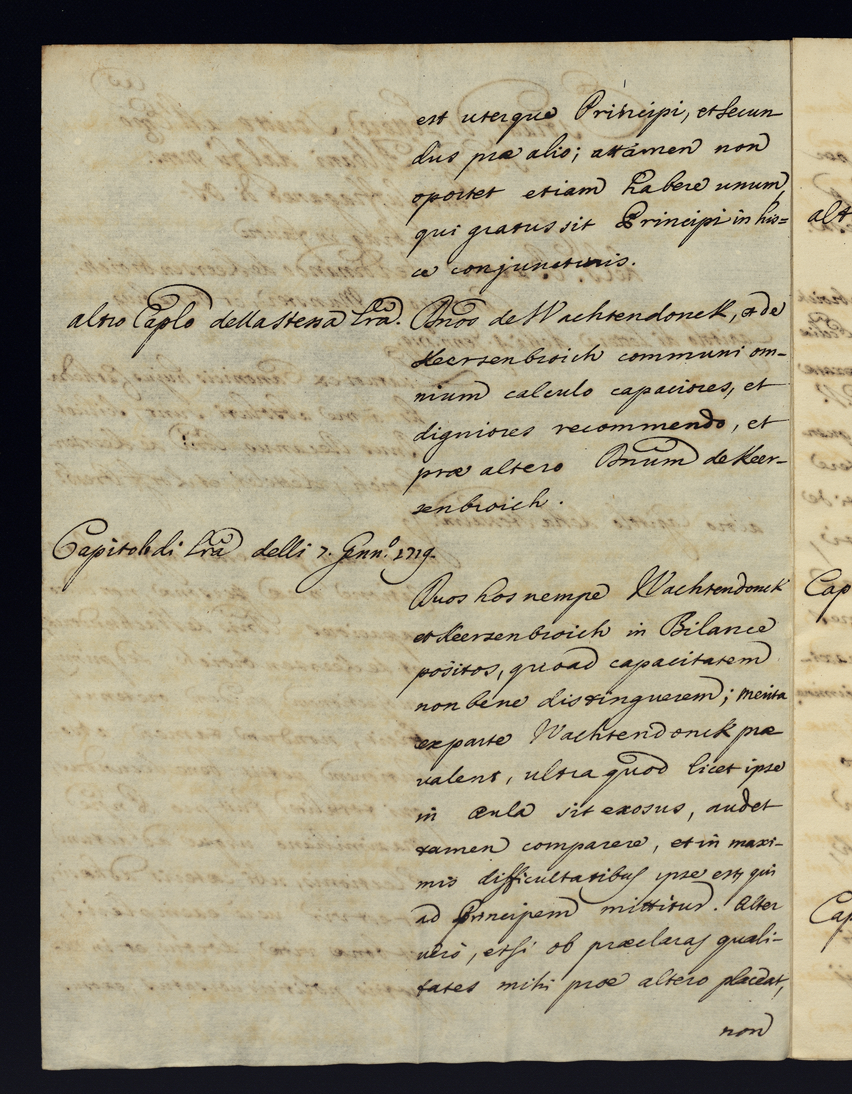 est uterque Principi, et secun-
dus præ alio; attamen non
oportet etiam habere unum,
qui gratus sit Principi in his=
ce conjuncturis.
altro Caplo della stessa Lra. Dnos de Wachtendonck, et de
Keersenbroich communi om-
nium calculo capaciores, et
digniores recommendo, et
præ altero Dnum de Keer-
senbroich.
Capitolo di Lra delli 7. Genn.o 1719.
Duos hos nempe Wachtendonck
et Keersenbroich in Bilance
positos, quoad capacitatem
non bene distinguerem; merita
ex parte Wachtendonck præ
valent, ultra quod licet ipse
in aula sit exosus, audet
tamen comparere, et in maxi-
mis difficultatibus ipse est qui
ad Principem mittitur. Alter
vero, etsi ob præclaras quali-
tates mihi præ altero placeat,
non
alt
Cap
Cap